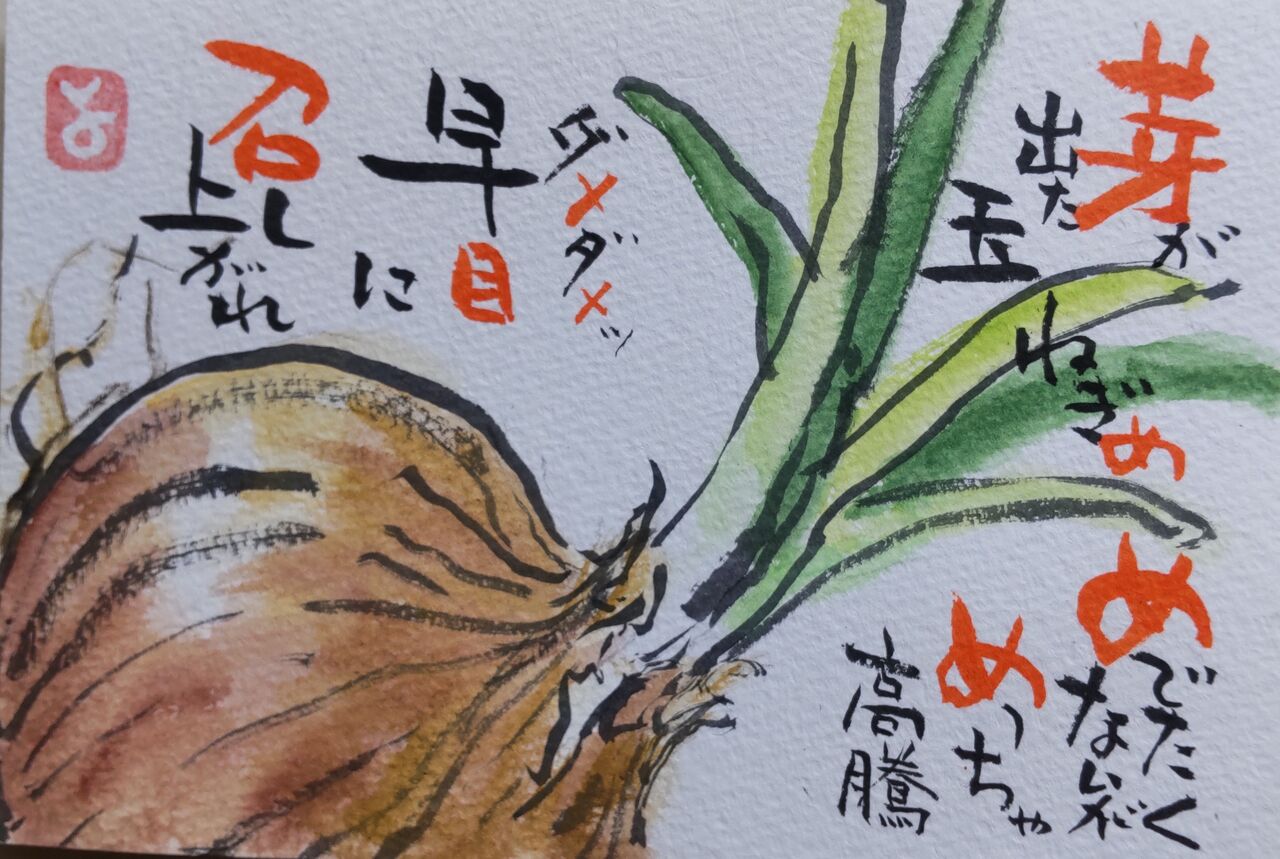 芽が
出た
玉
ねぎ
め
めでたく
ない
めっちゃ
高騰
ダメダメッ
早目
に
召し
上がれ